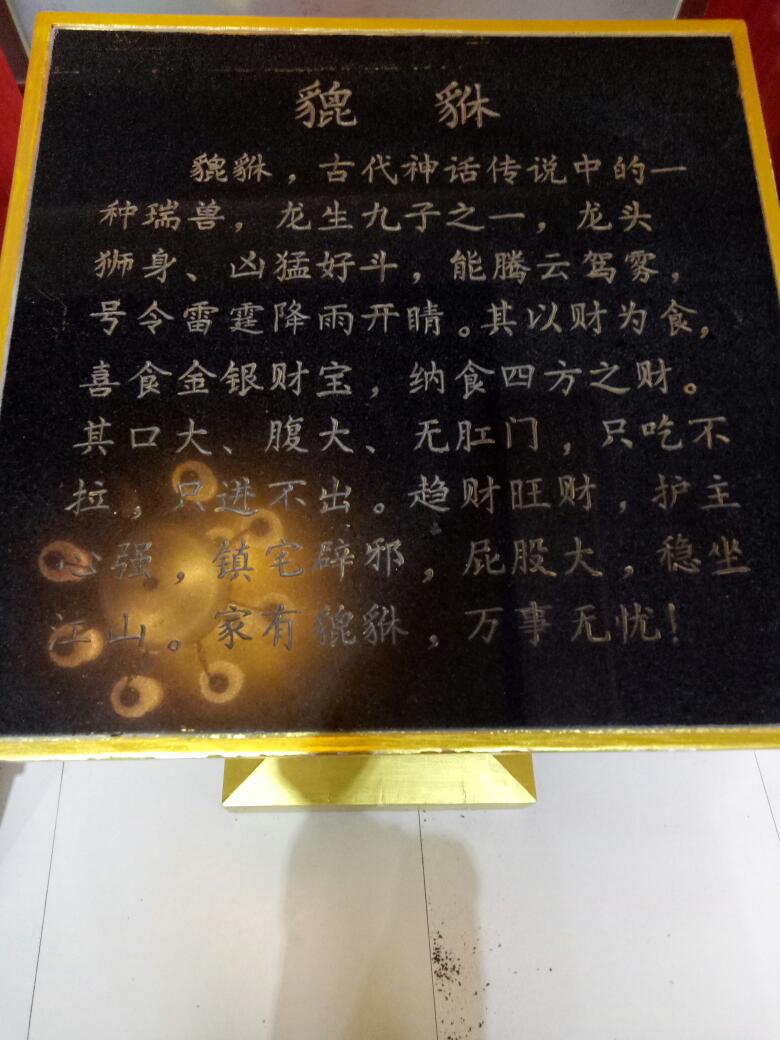 貔 貅
貔貅，古代神话传说中的一
种瑞兽，龙生九子之一，龙头
狮身、凶猛好斗，能腾云驾雾，
号令雷霆降雨开睛。其以财为食，
喜食金银财宝，纳食四方之财。
其口大、腹大、无肛门，只吃不
拉，只进不出。趋财旺财，护主
心强，镇宅辟邪，屁股大，稳坐
江山。家有貔貅，万事无忧！